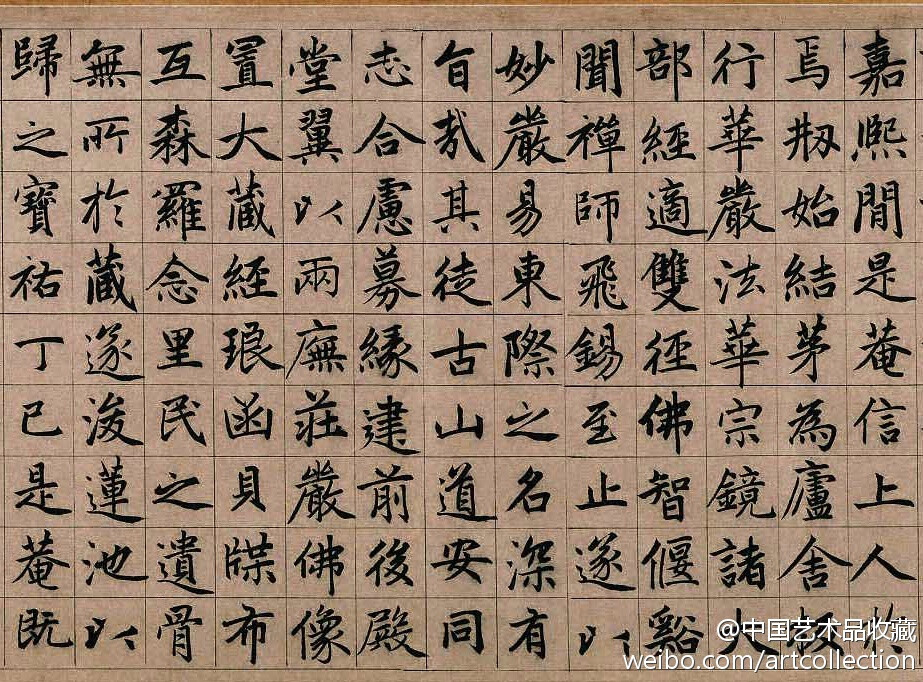 嘉熈間是菴信上人於
焉剏始結茅為廬舍板
行華嚴法華宗鏡諸大
部經適雙徑佛智偃谿
聞禪師飛錫至止遂以
妙嚴易東際之名深有
旨哉其徒古山道安同
志合慮募緣建前後殿
堂翼以兩廡莊嚴佛像
置大藏經琅函貝牒布
互森羅念里民之遺骨
無所於藏遂浚蓮池以
歸之寶祐丁巳是菴既
@中国艺术品收藏
weibo.com/artcollection